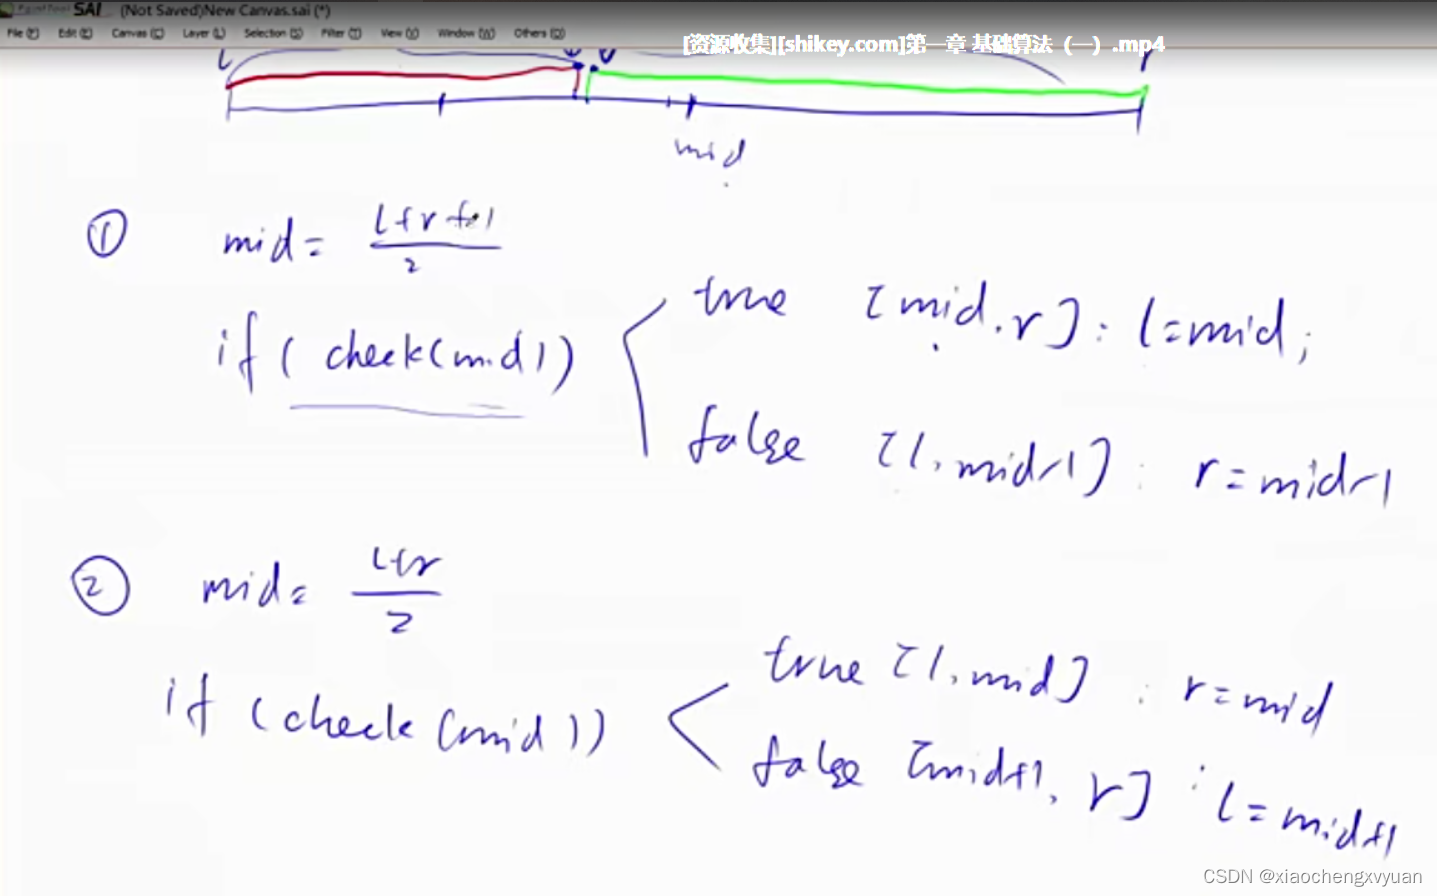 SAI (Not Saved)New Canvas.sai (*)
File (F) Edit (E) Canvas (C) Layer (L) Selection (S) Filter (T) View (V) Window (W) Others (O)
[资源收集][shikey.com]第一章 基础算法（一）.mp4
l r
mid
① mid = (l+r+1)/2
if ( check(mid) ) true [mid, r] : l=mid;
false [l, mid-1] : r=mid-1
② mid = (l+r)/2
if (check(mid)) true [l, mid] : r=mid
false [mid+1, r] : l=mid+1
CSDN @xiaochengxvyuan